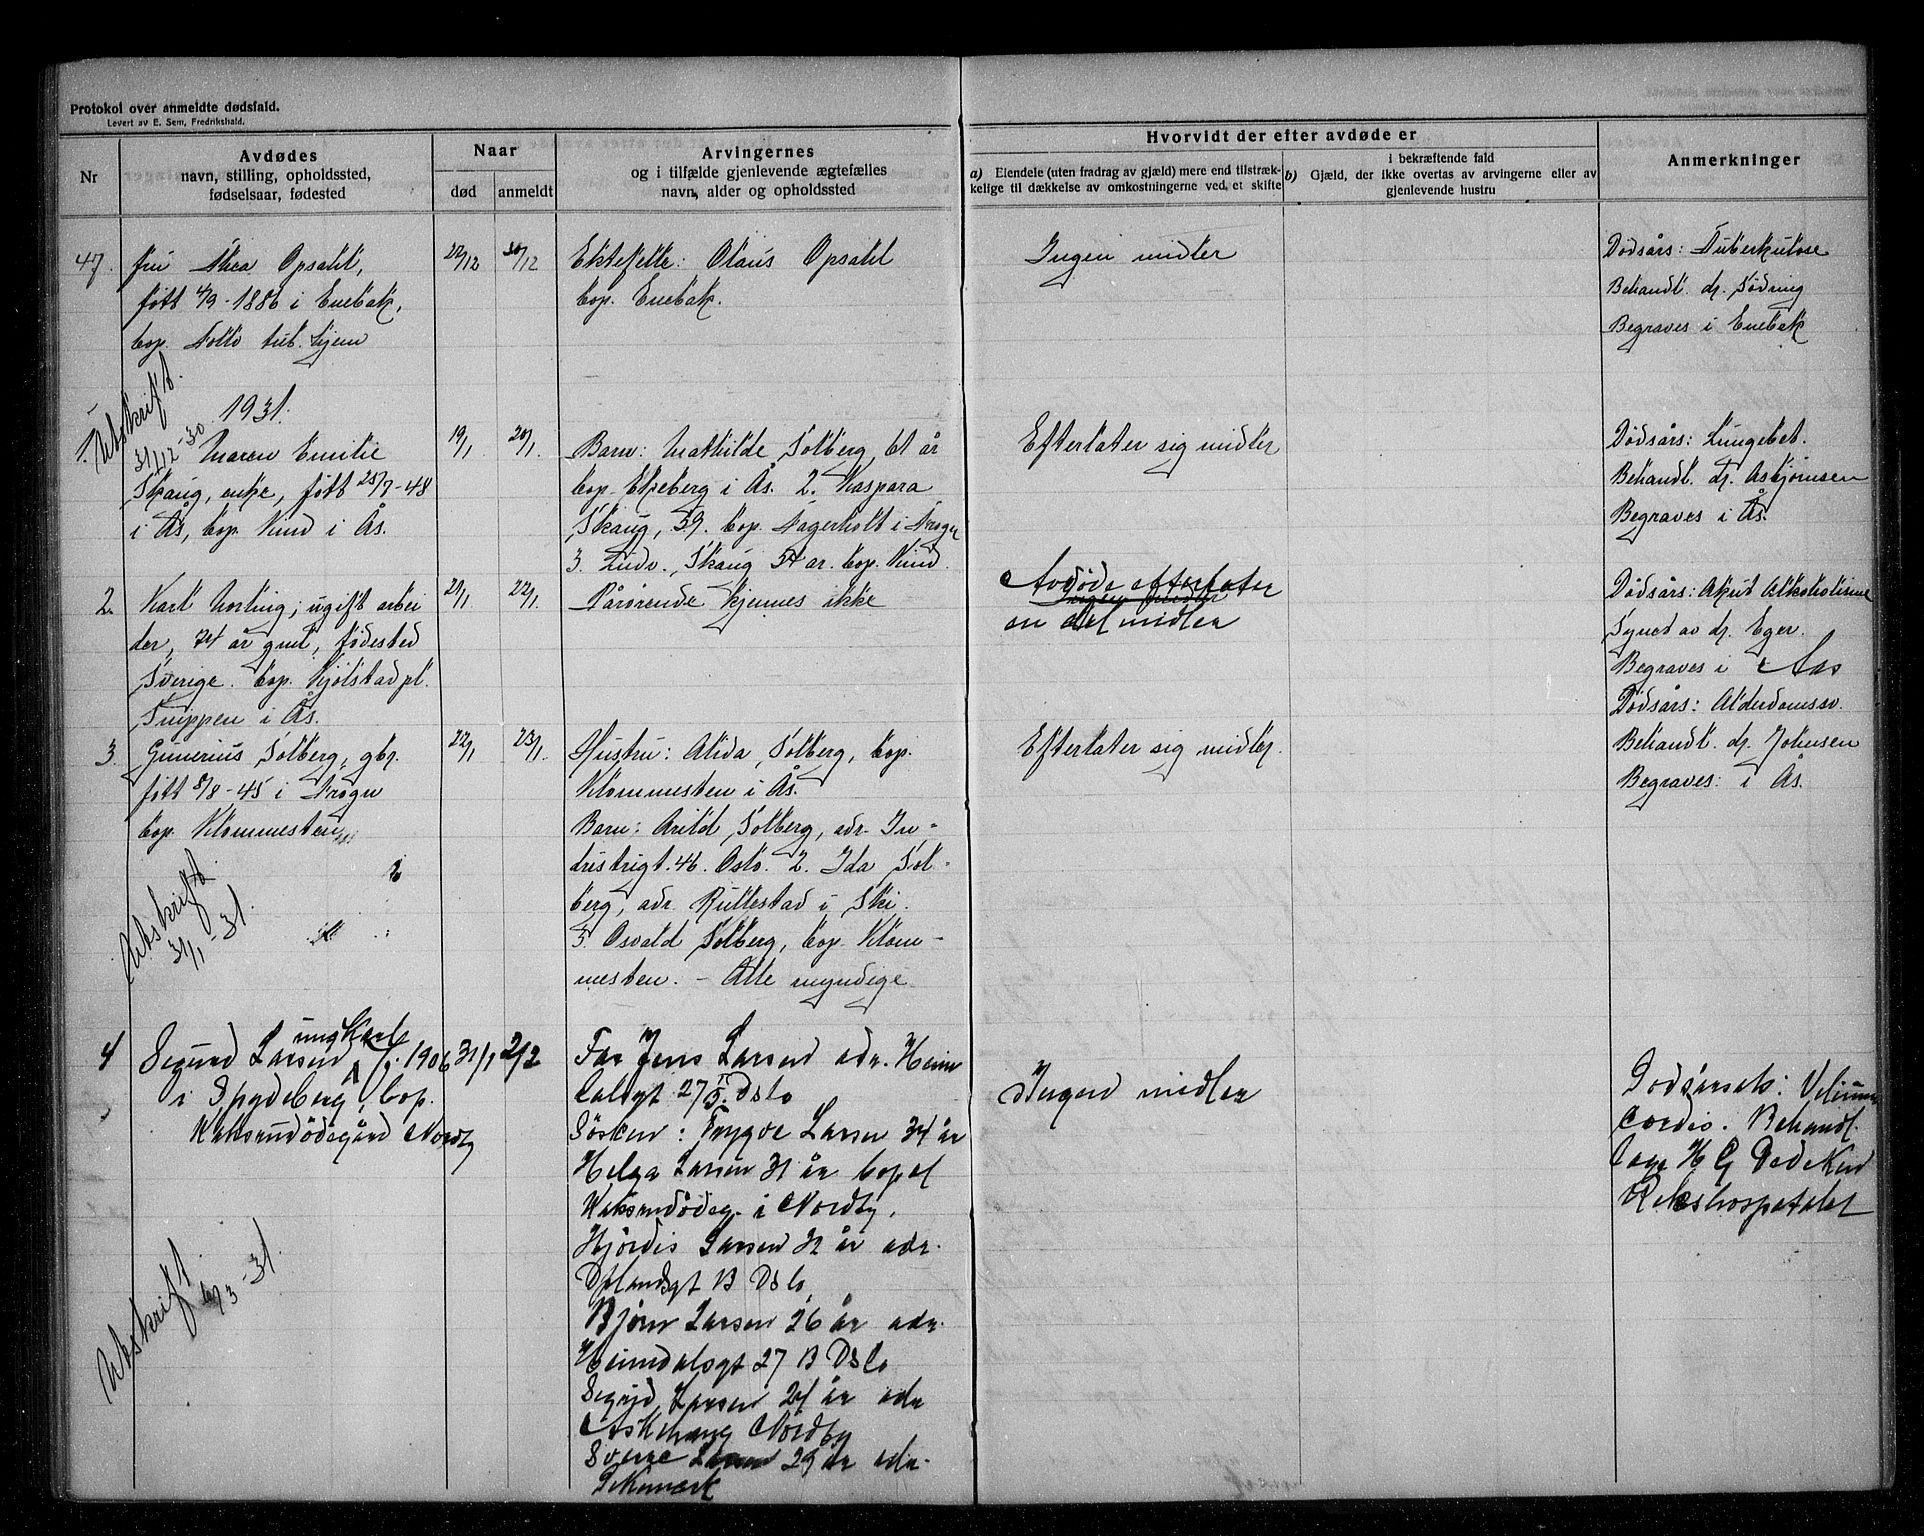 Protokol over anmeldte dødsfald.
Levert av E. Sem, Fredrikshald.
Nr
Avdødes
navn, stilling, opholdssted,
fødselsaar, fødested
Naar
død
anmeldt
Arvingernes
og i tilfælde gjenlevende ægtefælles
navn, alder og opholdssted
Hvorvidt der efter avdøde er
a) Eiendele (uten fradrag av gjæld) mere end tilstræk-
kelige til dækkelse av omkostningerne ved et skifte
b) i bekræftende fald
Gjæld, der ikke overtas av arvingerne eller av
gjenlevende hustru
Anmerkninger
47.
fru Thea Opsahl,
født 4/9-1886 i Enebak,
bop. Follo tub. hjem
22/12
30/12
Ektefelle: Olaus Opsahl
bop. Enebak.
Ingen midler
Dødsårs: Tuberkulose
Behandl. dr. Sødring
Begraves i Enebak
Utskrift
31/12-30
1931.
1.
Maren Emilie
Skaug, enke, født 25/7-48
i Ås, bop. Kind i Ås.
19/1
20/1.
Barn: Mathilde Solberg, 61 år
bop. Ekeberg i Ås. 2. Kaspara
Skaug, 59. bop. Fagerholt i Frogn
3. Ludv. Skaug 54 ar. bop. Kind.
Efterlater sig midler
Dødsårs: Lungebet.
Behandl. dr. Asbjørnsen
Begraves i Ås.
2.
Karl Norling, ugift arbei
der, 74 år gml, fødested
Sverige. bop. Kjølstad pl.
Snippen i Ås.
21/1
22/1.
Pårørende kjennes ikke
Avdøde efterlater
Ingen midler
en del midler
Dødsårs: Akut Alkoholisme
Synet av dr. Eger.
Begraves i Aas
3.
Gunerius Solberg, gbr.
født 8/8-45 i Frogn
bop. Klommesten
22/1
23/1.
Hustru: Alida Solberg, bop.
Klommesten i Ås.
Barn: Arild Solberg, adr. In-
dustrigt. 46. Oslo. 2. Ida Sol-
berg, adr. Rullestad i Ski.
3. Osvald Solberg, bop. Klom-
mesten. - Alle myndige
Efterlater sig midler.
Dødsårs: Alderdomssv.
Behandl. dr. Johnsen
Begraves: i Ås.
Utskrift
31/1-31.
4
ungkarl
Sigurd Larsen f. 1906
i Spydeberg, bop.
Nordby
31/1
2/2
Far Jens Larsen adr. Heim
dalsgt 27 B. Oslo
Søsken: Trygve Larsen 34 år
Helga Larsen 31 år bopel
i Nordby.
Hjördis Larsen 32 år adr.
Oplandsgt B Oslo
Björn Larsen 26 år adr.
Heimdalsgt 27 B Oslo
Sigrid Larsen 24 år adr
Askehaug Nordby
Sverre Larsen 29 år adr.
Ingen midler
Dødsårsak: Vitium
cordis. Behandl.
læge H G Dedeken
Rikshospitalet
Utskrift
/3-31.